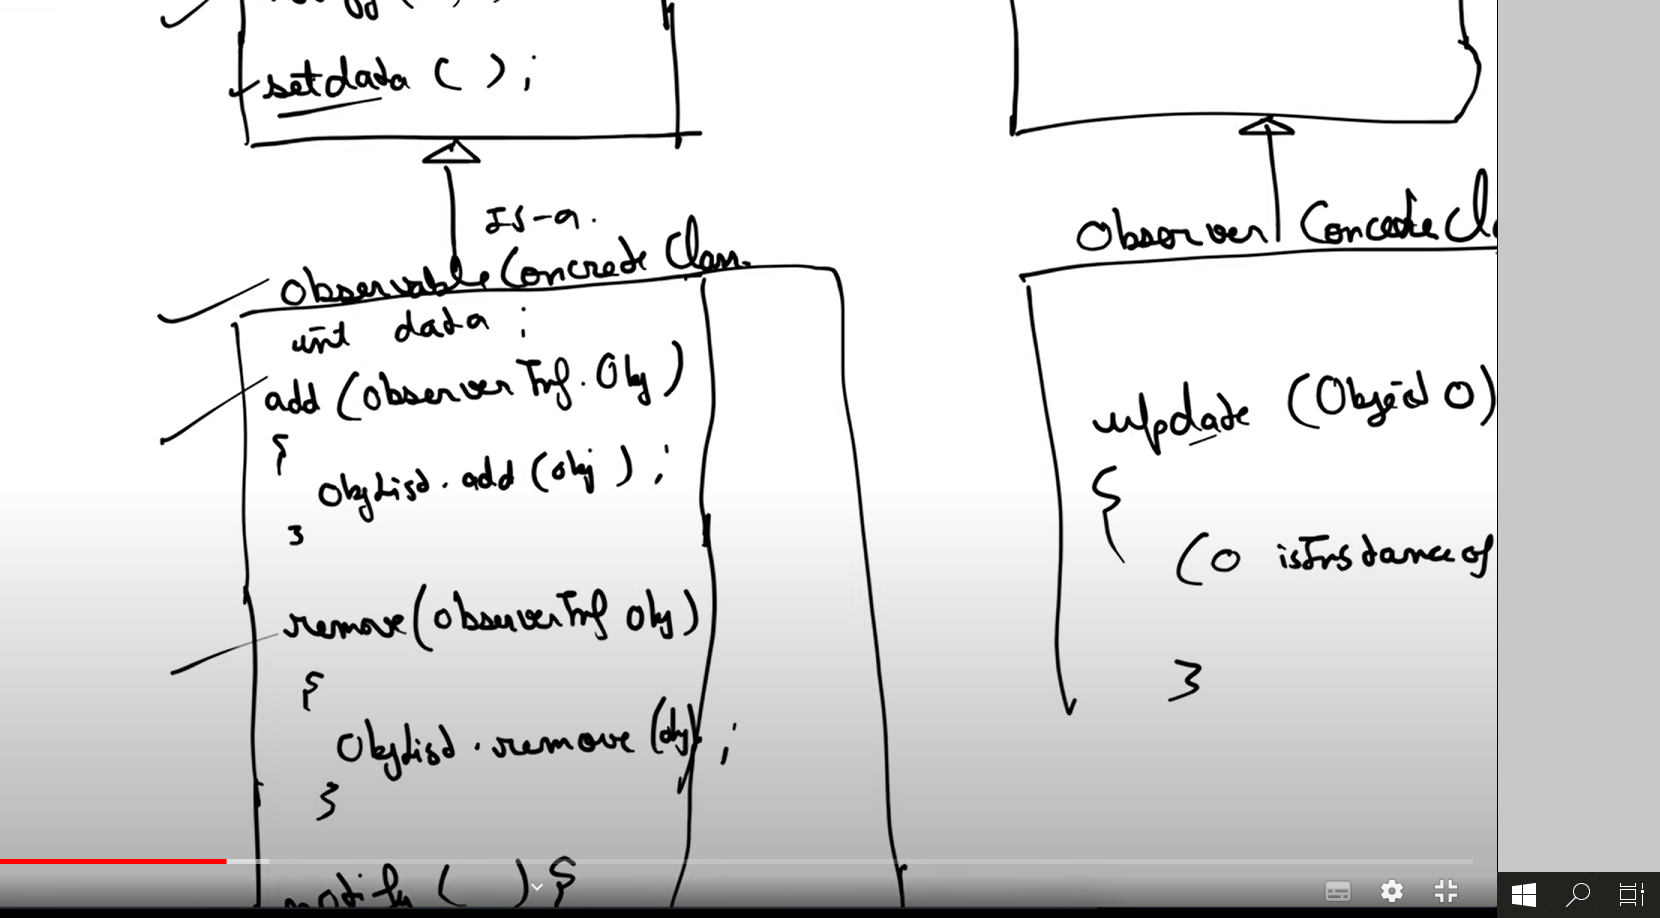 setdata ( ) ;
IS-a.
Observable Concrete Class.
int data ;
add (Observer Inf. Obj)
{
ObjList. add (obj) ;
}
remove (ObserverInf Obj)
{
ObjList. remove (obj) ;
}
notify ( ) {
Observer Concrete Cl
update (Object O)
{
(O isInstanceof
}